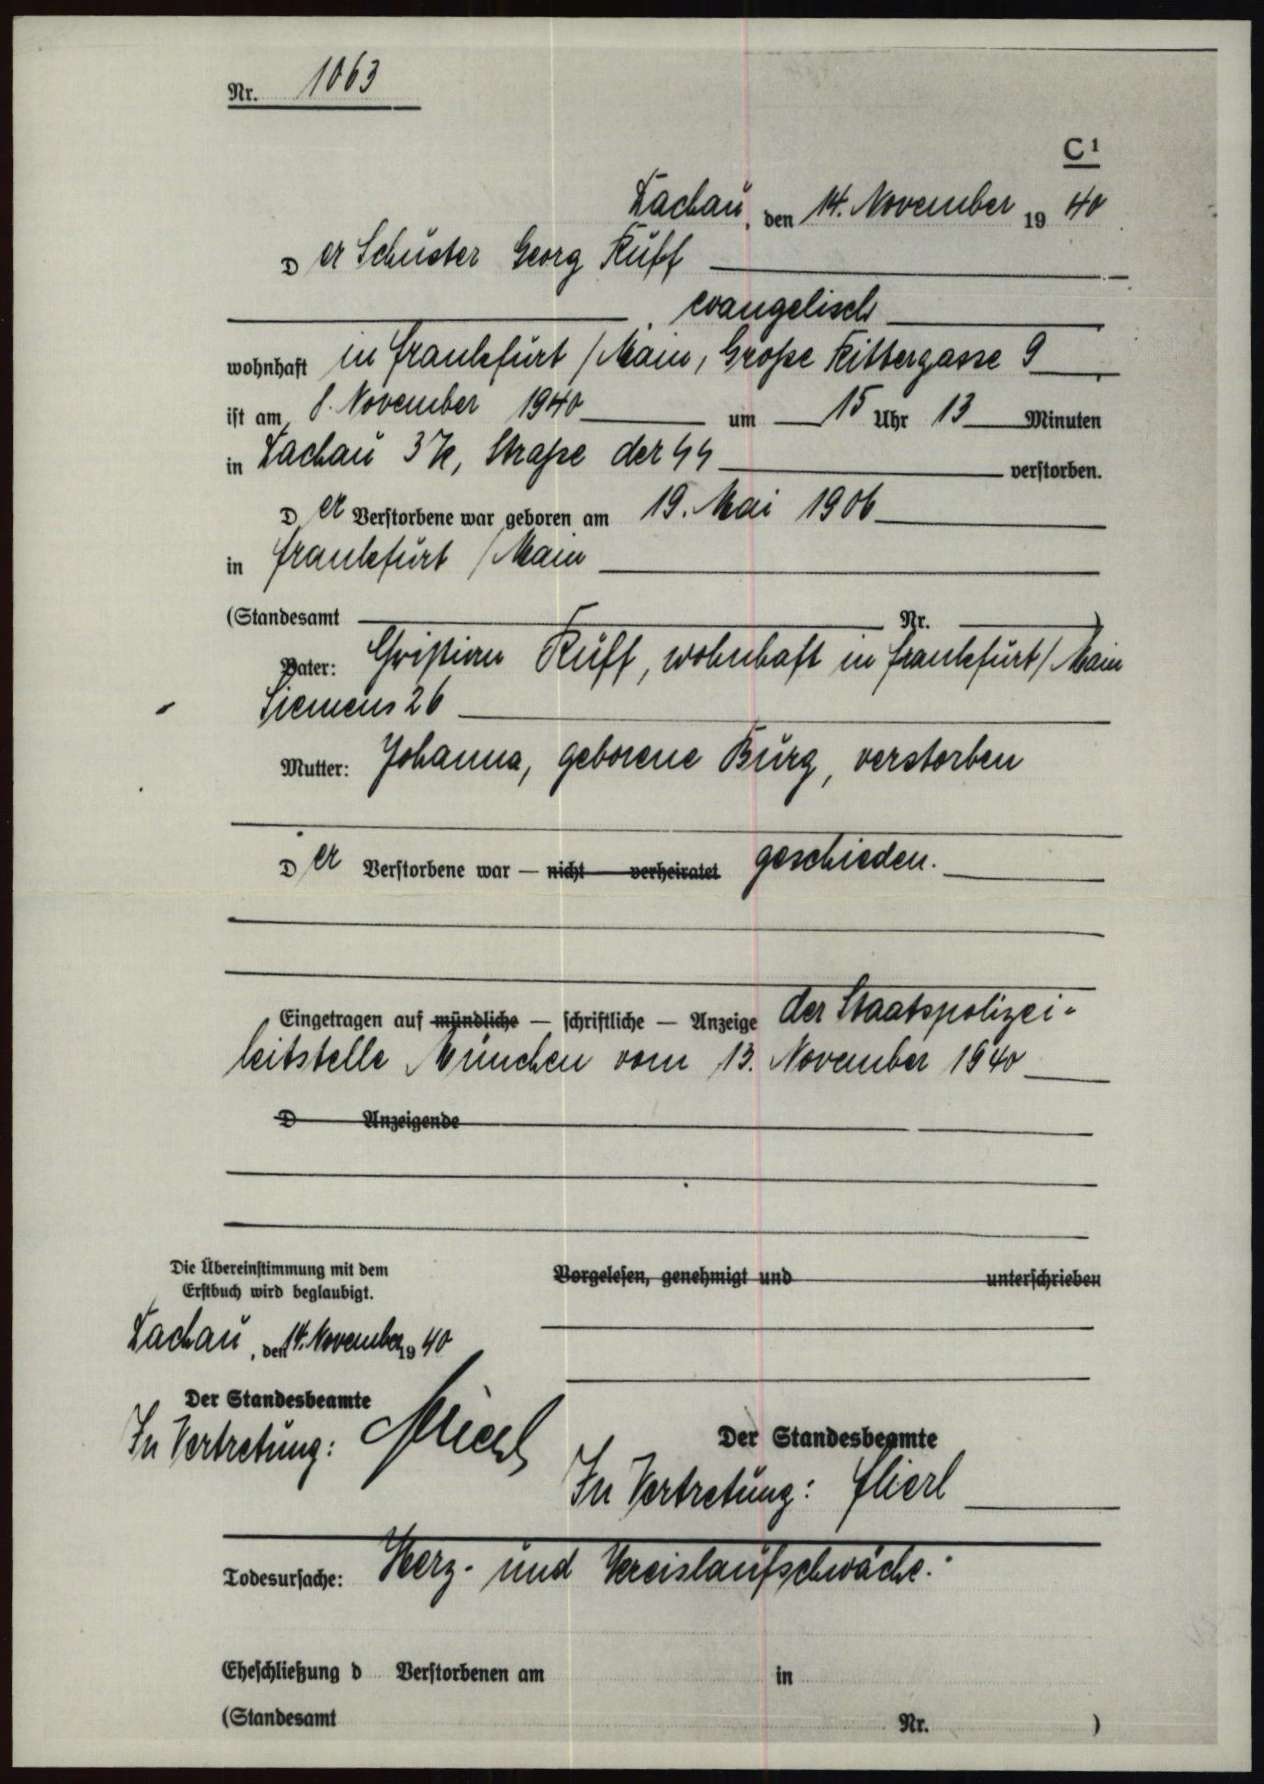 Nr. 1063
C 1
Dachau, den 14. November 19 40
Der Schuster Georg Ruff
, evangelisch
wohnhaft in Frankfurt/Main, Große Rittergasse 9
ist am 8. November 1940 um 15 Uhr 13 Minuten
in Dachau 3K, Straße der SS verstorben.
Der Verstorbene war geboren am 19. Mai 1906
in Frankfurt/Main
(Standesamt Nr. )
Vater: Christian Ruff, wohnhaft in Frankfurt/Main
Siemens 26
Mutter: Johanna, geborene Burg, verstorben
Der Verstorbene war — nicht verheiratet geschieden.
Eingetragen auf mündliche — schriftliche — Anzeige der Staatspolizei-
leitstelle München vom 13. November 1940
D Anzeigende
Die Übereinstimmung mit dem
Erstbuch wird beglaubigt.
Dachau, den 14. November 19 40
Der Standesbeamte
In Vertretung:
Vorgelesen, genehmigt und unterschrieben
Der Standesbeamte
In Vertretung: Flierl
Todesursache: Herz- und Kreislaufschwäche.
Eheschließung d Verstorbenen am in
(Standesamt Nr. )